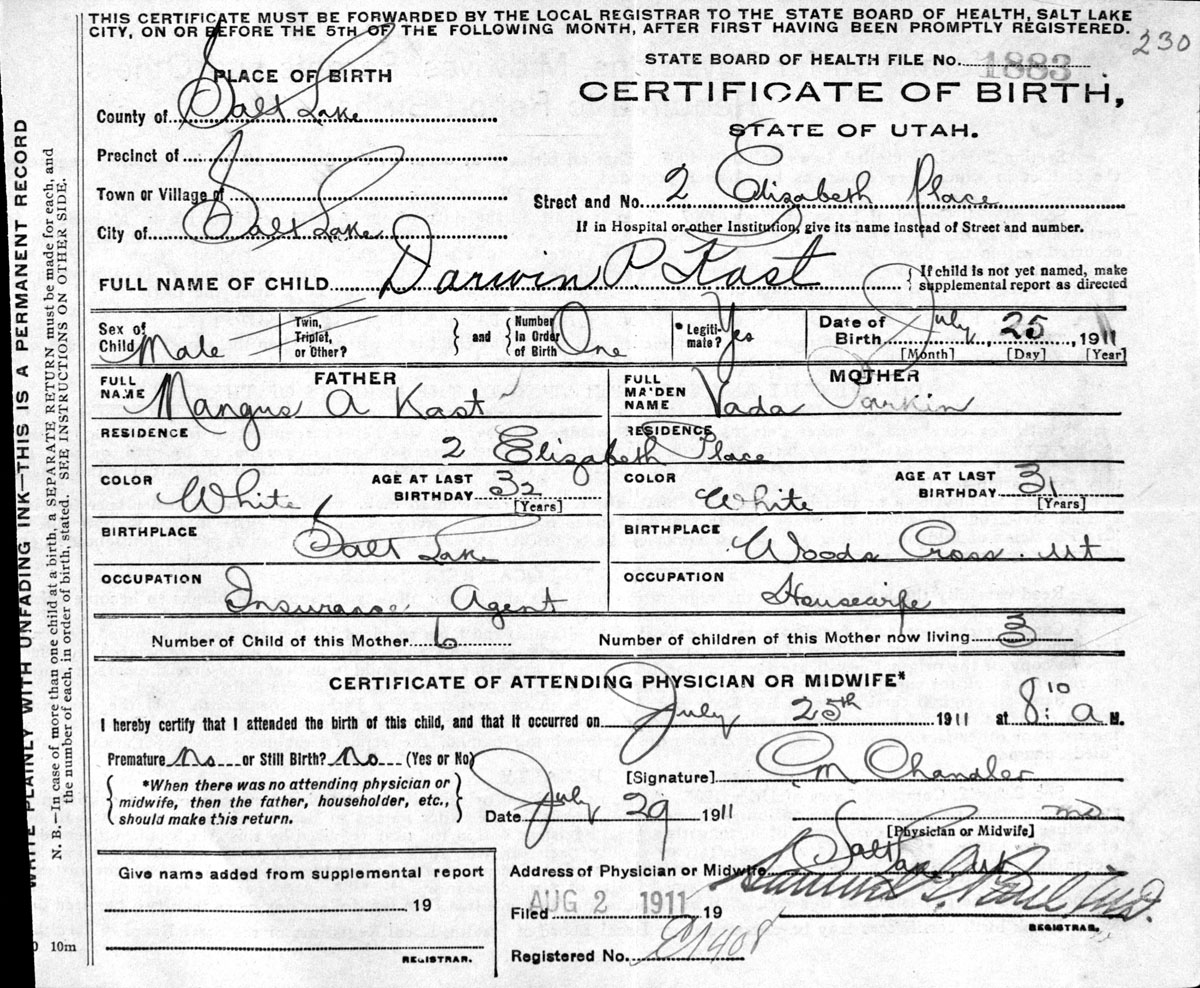 THIS CERTIFICATE MUST BE FORWARDED BY THE LOCAL REGISTRAR TO THE STATE BOARD OF HEALTH, SALT LAKE
CITY, ON OR BEFORE THE 5TH OF THE FOLLOWING MONTH, AFTER FIRST HAVING BEEN PROMPTLY REGISTERED.
230
STATE BOARD OF HEALTH FILE No. 1883
PLACE OF BIRTH
CERTIFICATE OF BIRTH,
STATE OF UTAH.
County of Salt Lake
Precinct of
Town or Village of
Street and No. 2 Elizabeth Place
City of Salt Lake
If in Hospital or other Institution, give its name instead of Street and number.
FULL NAME OF CHILD Darwin P. Kast
{If child is not yet named, make
supplemental report as directed
Sex of Child Male
Twin, Triplet, or Other? } and { Number in Order of Birth One
*Legitimate? Yes
Date of Birth July 25, 1911
[Month] [Day] [Year]
FATHER
FULL NAME Mangus A Kast
MOTHER
FULL MAIDEN NAME Vada Parkin
RESIDENCE 2 Elizabeth Place
RESIDENCE
COLOR White AGE AT LAST BIRTHDAY 32 [Years]
COLOR White AGE AT LAST BIRTHDAY 31 [Years]
BIRTHPLACE Salt Lake
BIRTHPLACE Woods Cross Ut
OCCUPATION Insurance Agent
OCCUPATION Housewife
Number of Child of this Mother 6
Number of children of this Mother now living 3
CERTIFICATE OF ATTENDING PHYSICIAN OR MIDWIFE*
I hereby certify that I attended the birth of this child, and that it occurred on July 25th 1911 at 8:10 a M.
Premature No or Still Birth? No (Yes or No)
[Signature] C M Chandler
{*When there was no attending physician or
midwife, then the father, householder, etc.,
should make this return.}
Date July 29 1911 MD
[Physician or Midwife]
Address of Physician or Midwife Salt Lake
Give name added from supplemental report
19
REGISTRAR.
Filed AUG 2 1911 19
Samuel G. Paul M.D.
REGISTRAR.
Registered No. C1408
WRITE PLAINLY WITH UNFADING INK—THIS IS A PERMANENT RECORD
N. B.—In case of more than one child at a birth, a SEPARATE RETURN must be made for each, and
the number of each, in order of birth, stated. SEE INSTRUCTIONS ON OTHER SIDE.
10m